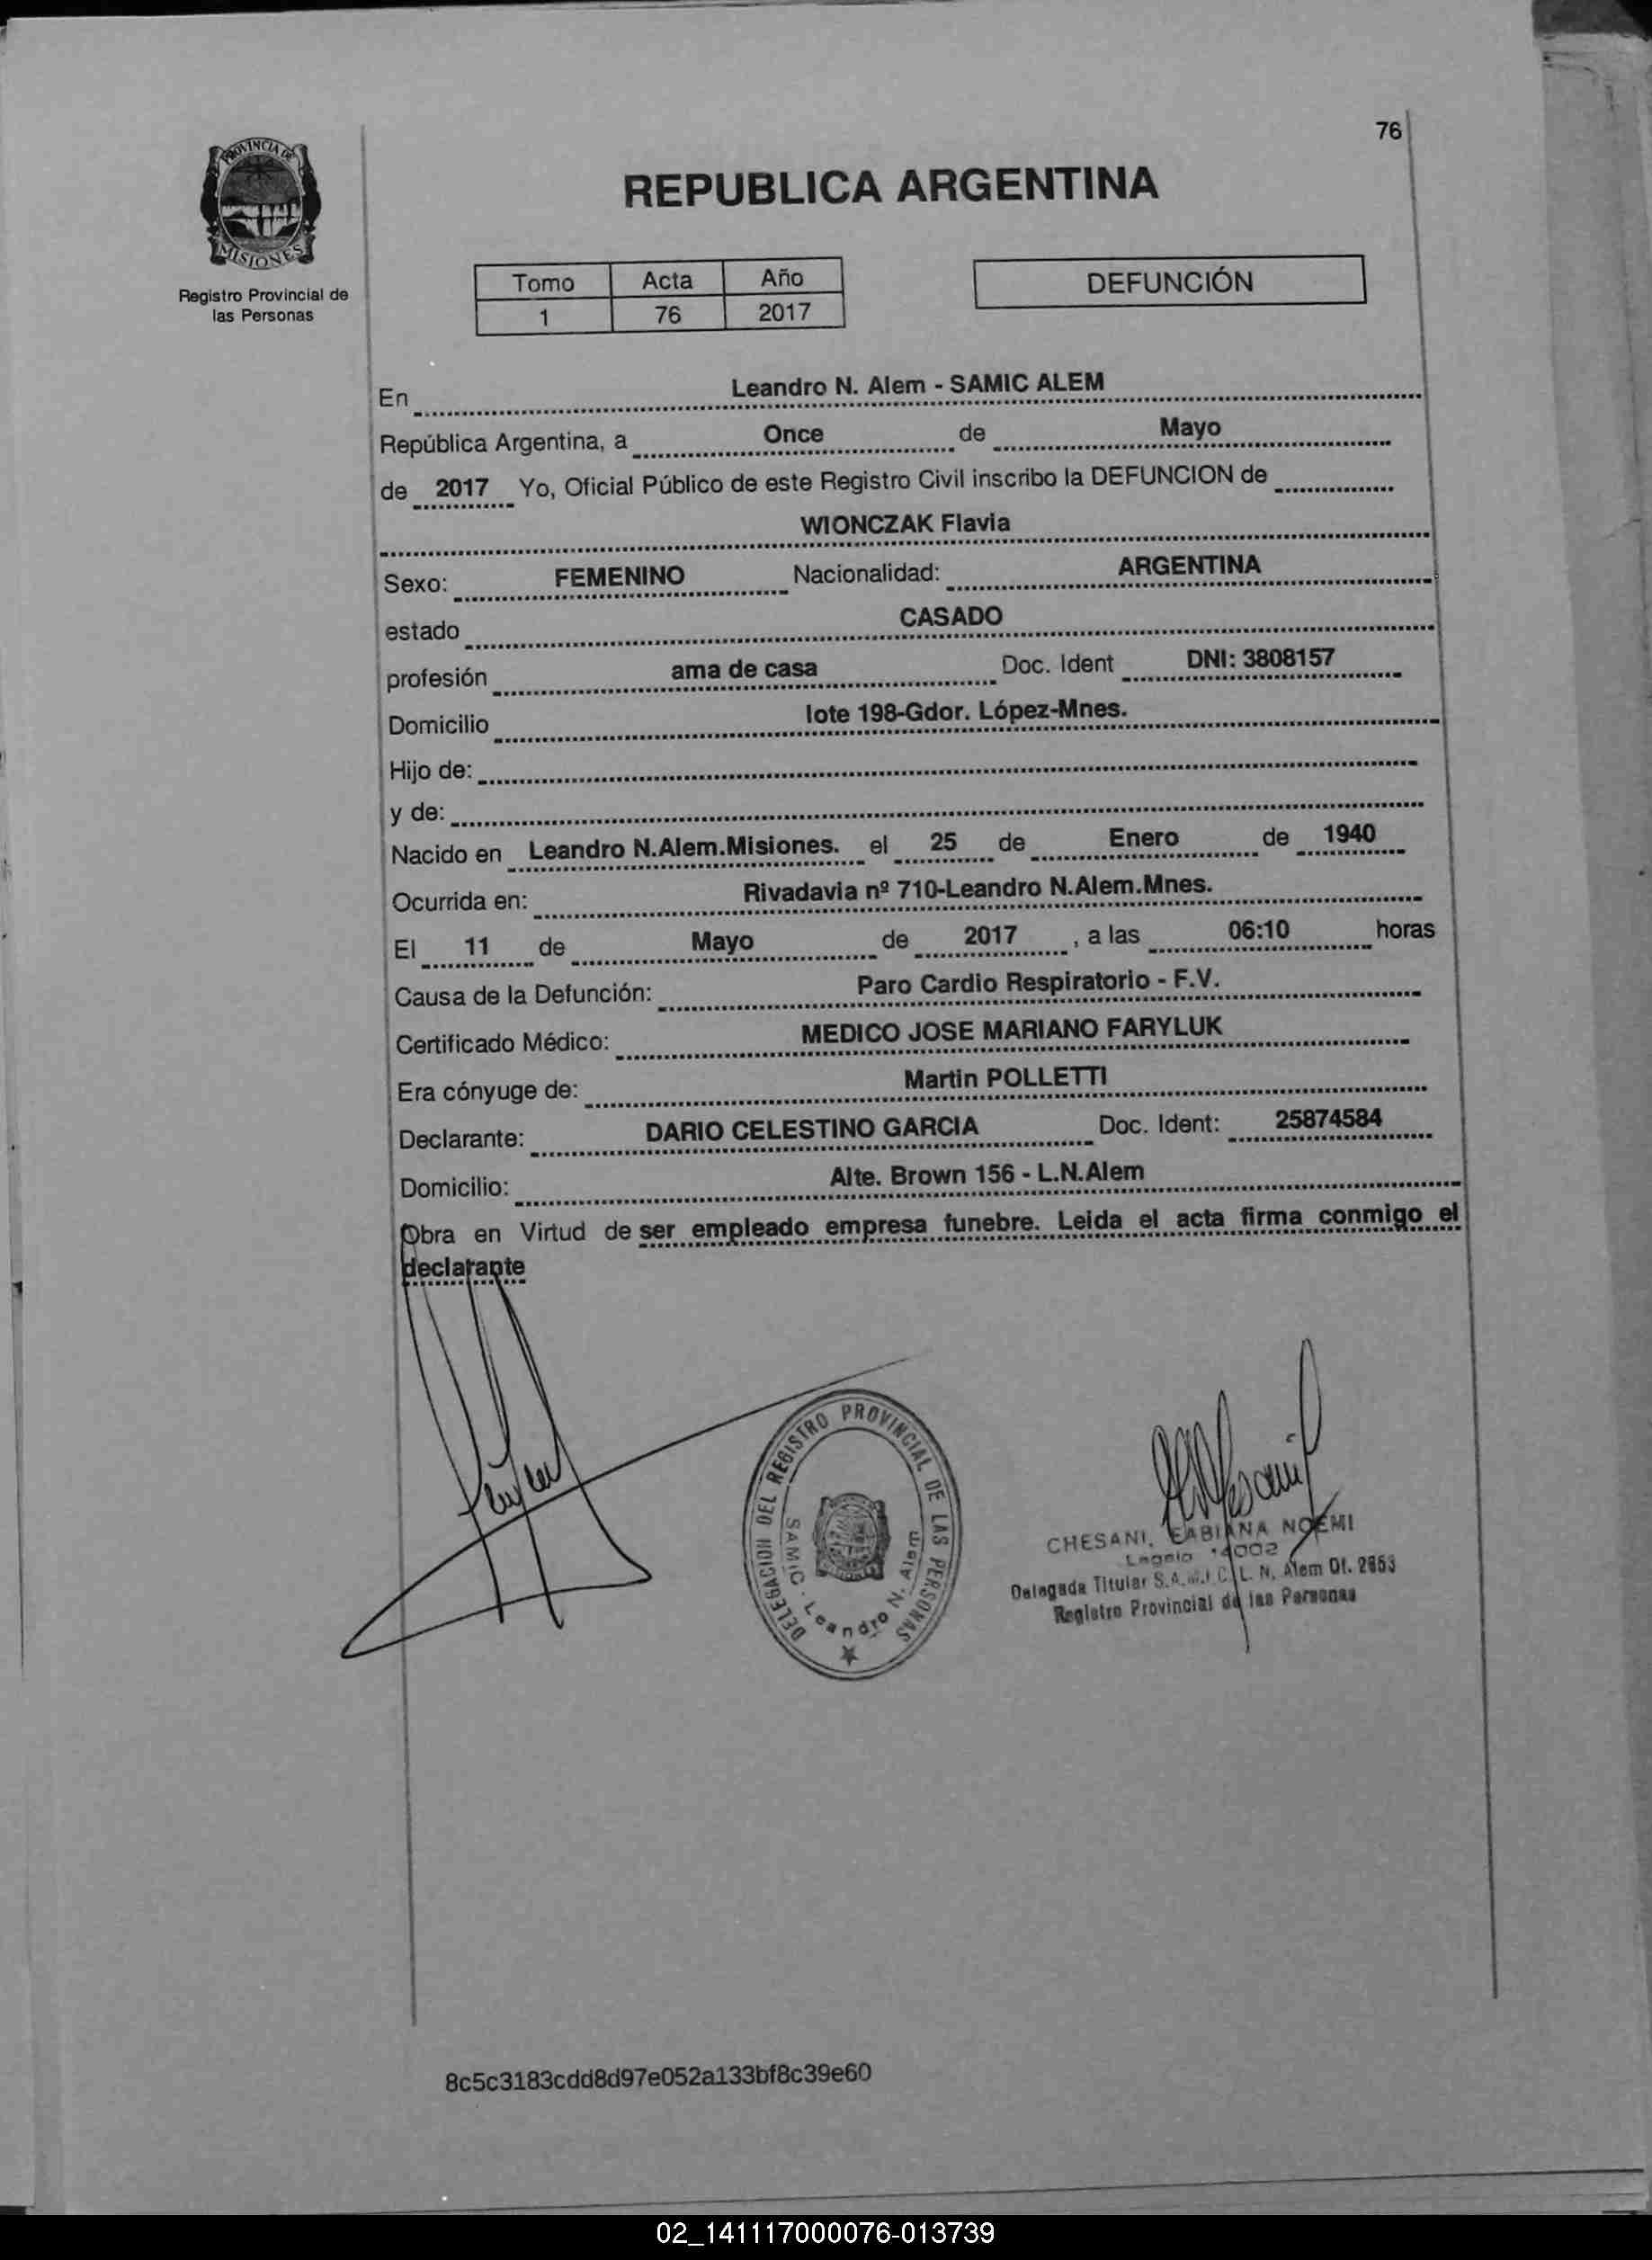 76
PROVINCIA DE
MISIONES
Registro Provincial de
las Personas
REPUBLICA ARGENTINA
Tomo Acta Año
1 76 2017
DEFUNCIÓN
En Leandro N. Alem - SAMIC ALEM
República Argentina, a Once de Mayo
de 2017 Yo, Oficial Público de este Registro Civil inscribo la DEFUNCION de
WIONCZAK Flavia
Sexo: FEMENINO Nacionalidad: ARGENTINA
estado CASADO
profesión ama de casa Doc. Ident DNI: 3808157
Domicilio lote 198-Gdor. López-Mnes.
Hijo de:
y de:
Nacido en Leandro N.Alem.Misiones. el 25 de Enero de 1940
Ocurrida en: Rivadavia nº 710-Leandro N.Alem.Mnes.
El 11 de Mayo de 2017 , a las 06:10 horas
Causa de la Defunción: Paro Cardio Respiratorio - F.V.
Certificado Médico: MEDICO JOSE MARIANO FARYLUK
Era cónyuge de: Martin POLLETTI
Declarante: DARIO CELESTINO GARCIA Doc. Ident: 25874584
Domicilio: Alte. Brown 156 - L.N.Alem
Obra en Virtud de ser empleado empresa funebre. Leida el acta firma conmigo el
declarante
DELEGACION DEL REGISTRO PROVINCIAL DE LAS PERSONAS
SAMIC - Leandro N. Alem
CHESANI, FABIANA NOEMI
Legajo
Delegada Titular L. N. Alem Of. 2653
Registro Provincial de las Personas
8c5c3183cdd8d97e052a133bf8c39e60
02_141117000076-013739